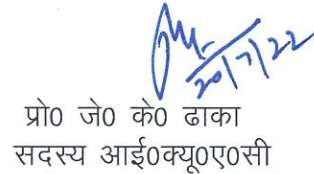 20/7/22
प्रो0 जे0 के0 ढाका
सदस्य आई0क्यू0ए0सी